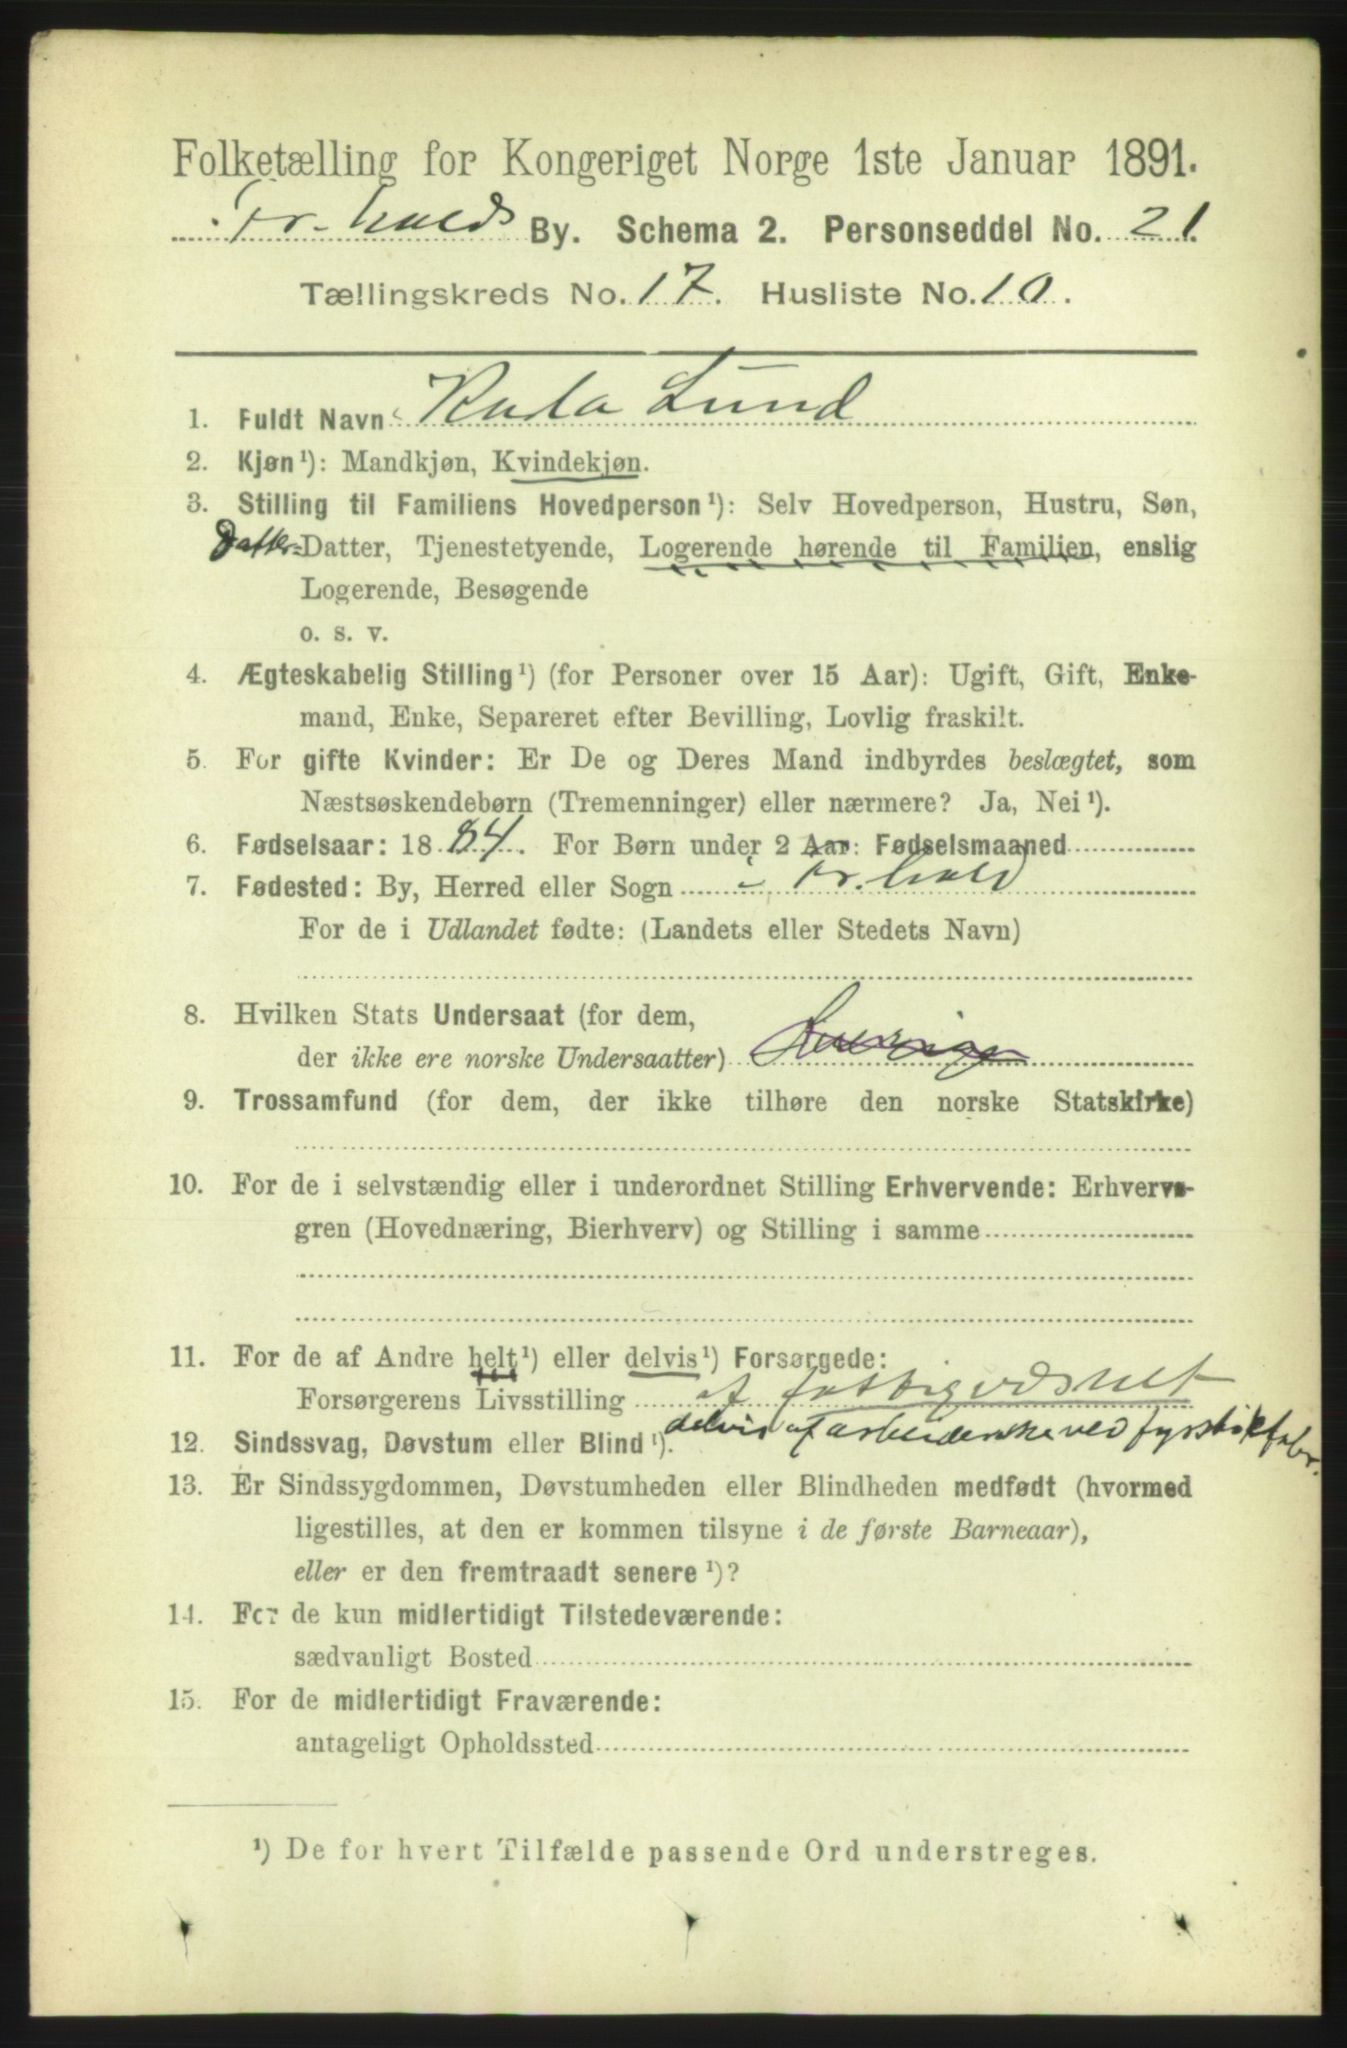 Folketælling for Kongeriget Norge 1ste Januar 1891.
Fr.halds By. Schema 2. Personseddel No. 21.
Tællingskreds No. 17. Husliste No. 10.
1. Fuldt Navn Lund
2. Kjøn¹): Mandkjøn, Kvindekjøn.
3. Stilling til Familiens Hovedperson¹): Selv Hovedperson, Hustru, Søn,
Datter= Datter, Tjenestetyende, Logerende hørende til Familien, enslig
Logerende, Besøgende
o. s. v.
4. Ægteskabelig Stilling¹) (for Personer over 15 Aar): Ugift, Gift, Enke-
mand, Enke, Separeret efter Bevilling, Lovlig fraskilt.
5. For gifte Kvinder: Er De og Deres Mand indbyrdes beslægtet, som
Næstsøskendebørn (Tremenninger) eller nærmere? Ja, Nei¹).
6. Fødselsaar: 1884. For Børn under 2 Aar: Fødselsmaaned
7. Fødested: By, Herred eller Sogn i Fr.hald
For de i Udlandet fødte: (Landets eller Stedets Navn)
8. Hvilken Stats Undersaat (for dem,
der ikke ere norske Undersaatter) Sverige
9. Trossamfund (for dem, der ikke tilhøre den norske Statskirke)
10. For de i selvstændig eller i underordnet Stilling Erhvervende: Erhvervs-
gren (Hovednæring, Bierhverv) og Stilling i samme
11. For de af Andre helt¹) eller delvis¹) Forsørgede:
Forsørgerens Livsstilling af fattigvæsnet
delvis af arbeiderske ved fyrstikfabr.
12. Sindssvag, Døvstum eller Blind¹).
13. Er Sindssygdommen, Døvstumheden eller Blindheden medfødt (hvormed
ligestilles, at den er kommen tilsyne i de første Barneaar),
eller er den fremtraadt senere¹)?
14. For de kun midlertidigt Tilstedeværende:
sædvanligt Bosted
15. For de midlertidigt Fraværende:
antageligt Opholdssted
¹) De for hvert Tilfælde passende Ord understreges.